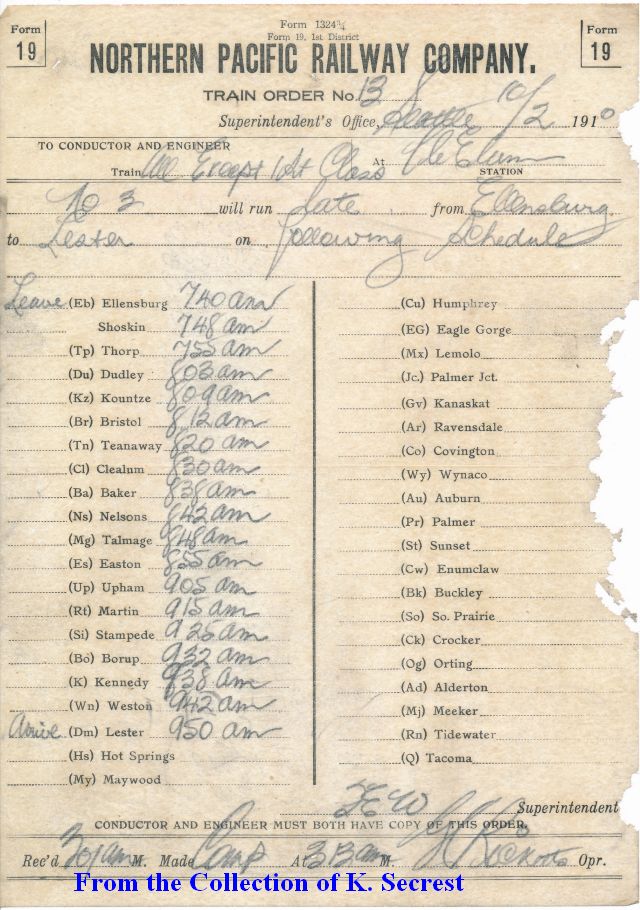 Form 1324¾
Form 19, 1st District
Form 19
Form 19
NORTHERN PACIFIC RAILWAY COMPANY.
TRAIN ORDER No. 13
Superintendent's Office, Seattle 10/2 1910
TO CONDUCTOR AND ENGINEER
Train All Except 1st Class At Cle Elum STATION
No 3 will run late from Ellensburg
to Lester on following Schedule
Leave (Eb) Ellensburg 740 am
Shoskin 748 am
(Tp) Thorp 755 am
(Du) Dudley 803 am
(Kz) Kountze 809 am
(Br) Bristol 812 am
(Tn) Teanaway 820 am
(Cl) Clealum 830 am
(Ba) Baker 838 am
(Ns) Nelsons 842 am
(Mg) Talmage 848 am
(Es) Easton 855 am
(Up) Upham 905 am
(Rt) Martin 915 am
(Si) Stampede 925 am
(Bo) Borup 932 am
(K) Kennedy 938 am
(Wn) Weston 942 am
Arrive (Dm) Lester 950 am
(Hs) Hot Springs
(My) Maywood
(Cu) Humphrey
(EG) Eagle Gorge
(Mx) Lemolo
(Jc.) Palmer Jct.
(Gv) Kanaskat
(Ar) Ravensdale
(Co) Covington
(Wy) Wynaco
(Au) Auburn
(Pr) Palmer
(St) Sunset
(Cw) Enumclaw
(Bk) Buckley
(So) So. Prairie
(Ck) Crocker
(Og) Orting
(Ad) Alderton
(Mj) Meeker
(Rn) Tidewater
(Q) Tacoma
Superintendent
CONDUCTOR AND ENGINEER MUST BOTH HAVE COPY OF THIS ORDER.
Rec'd 301 am M. Made Comp At 313 am M. Opr.
From the Collection of K. Secrest